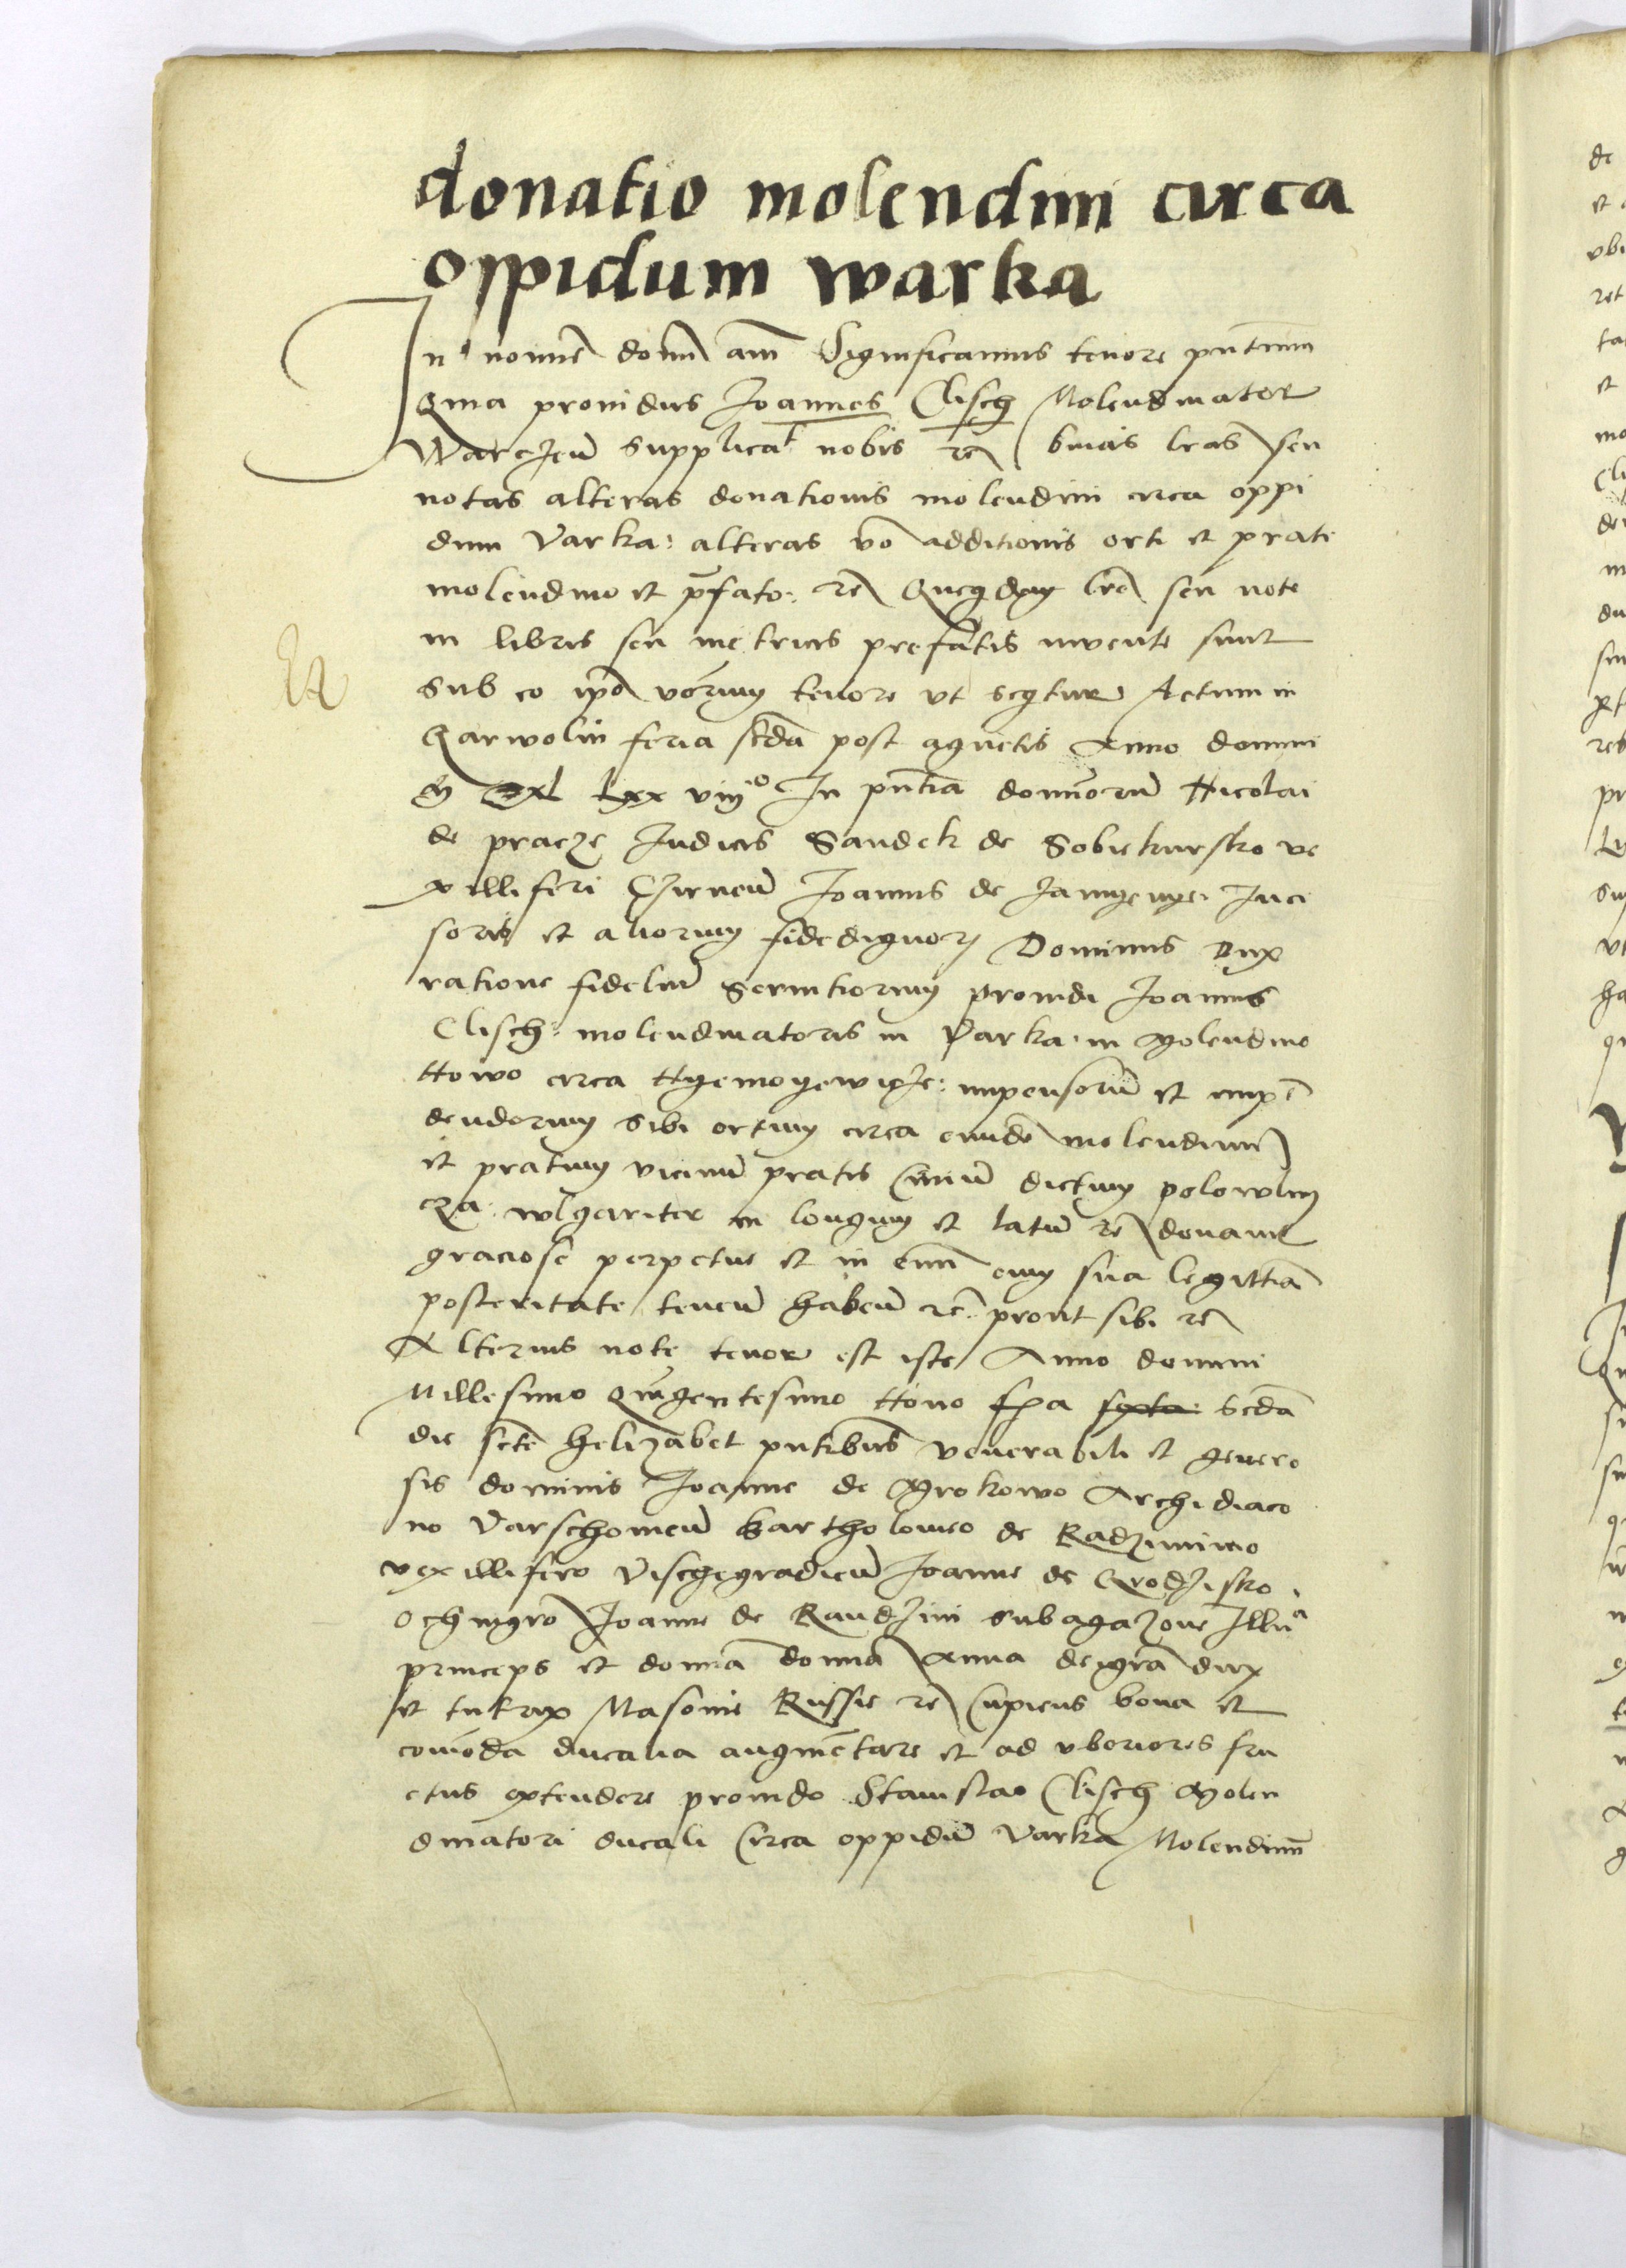 donatio molendini circa
oppidum warka
In nomine domi am Significamus tenore pntium
Quia providus Joannes Clisch Molendinator
Warcien supplicat nobis re binas lras seu
notas alteras donationis molendini circa oppi
dum Varka: alteras vo additionis orti et prati
molendino et prefato: re Queqdem lre seu note
in libris seu metricis prefatis invente sunt
sub eo ipo verorum tenore ut seqtur Actum in
Garwolin feria scda post agnetis Anno domini
M viij° In pntia dominorum Nicolai
de praczę Judicis Sandek de Sobiekursko ve
xilliferi Czirnen Joannis de Jamyenye Inci
soris et aliorum fidedignor Dominus Dux
ratione fidelium Servitiorum providi Joannis
Clisch: molendinatoris in Varka: in Molendino
Novo circa Nyemoyewicze: impensorum et impe
dendorum sibi ortum circa eunde molendinum
et pratum vicinum pratis dictum polowem
cza: wlgariter in longum et latum re donavit
graciose perpetue et in evum cum sua legittia
posteritate tenen haben re prout sibi re
Alterius note tenor est iste Anno domini
Millesimo Quigentesimo Nono fia sexta: scda
die scte helizabet pntibus venerabili et genero
sis dominis Joanne de Mrokowo Archidiaco
no Varschovien Bartholomeo de Radzimino
vexillifero Vischegradien Joanne de Grodzisko
Joanne de Raudzini Subagazone Illu a
princeps et domina domina Anna dei gra dux
et tutrix Masovie Russie re Cupiens bona et
comoda ducalia augmetare et ad uberiores fru
ctus extendere provido Stanislao Clisch Molen
dinatori ducali Circa oppidum Varka Molendinum